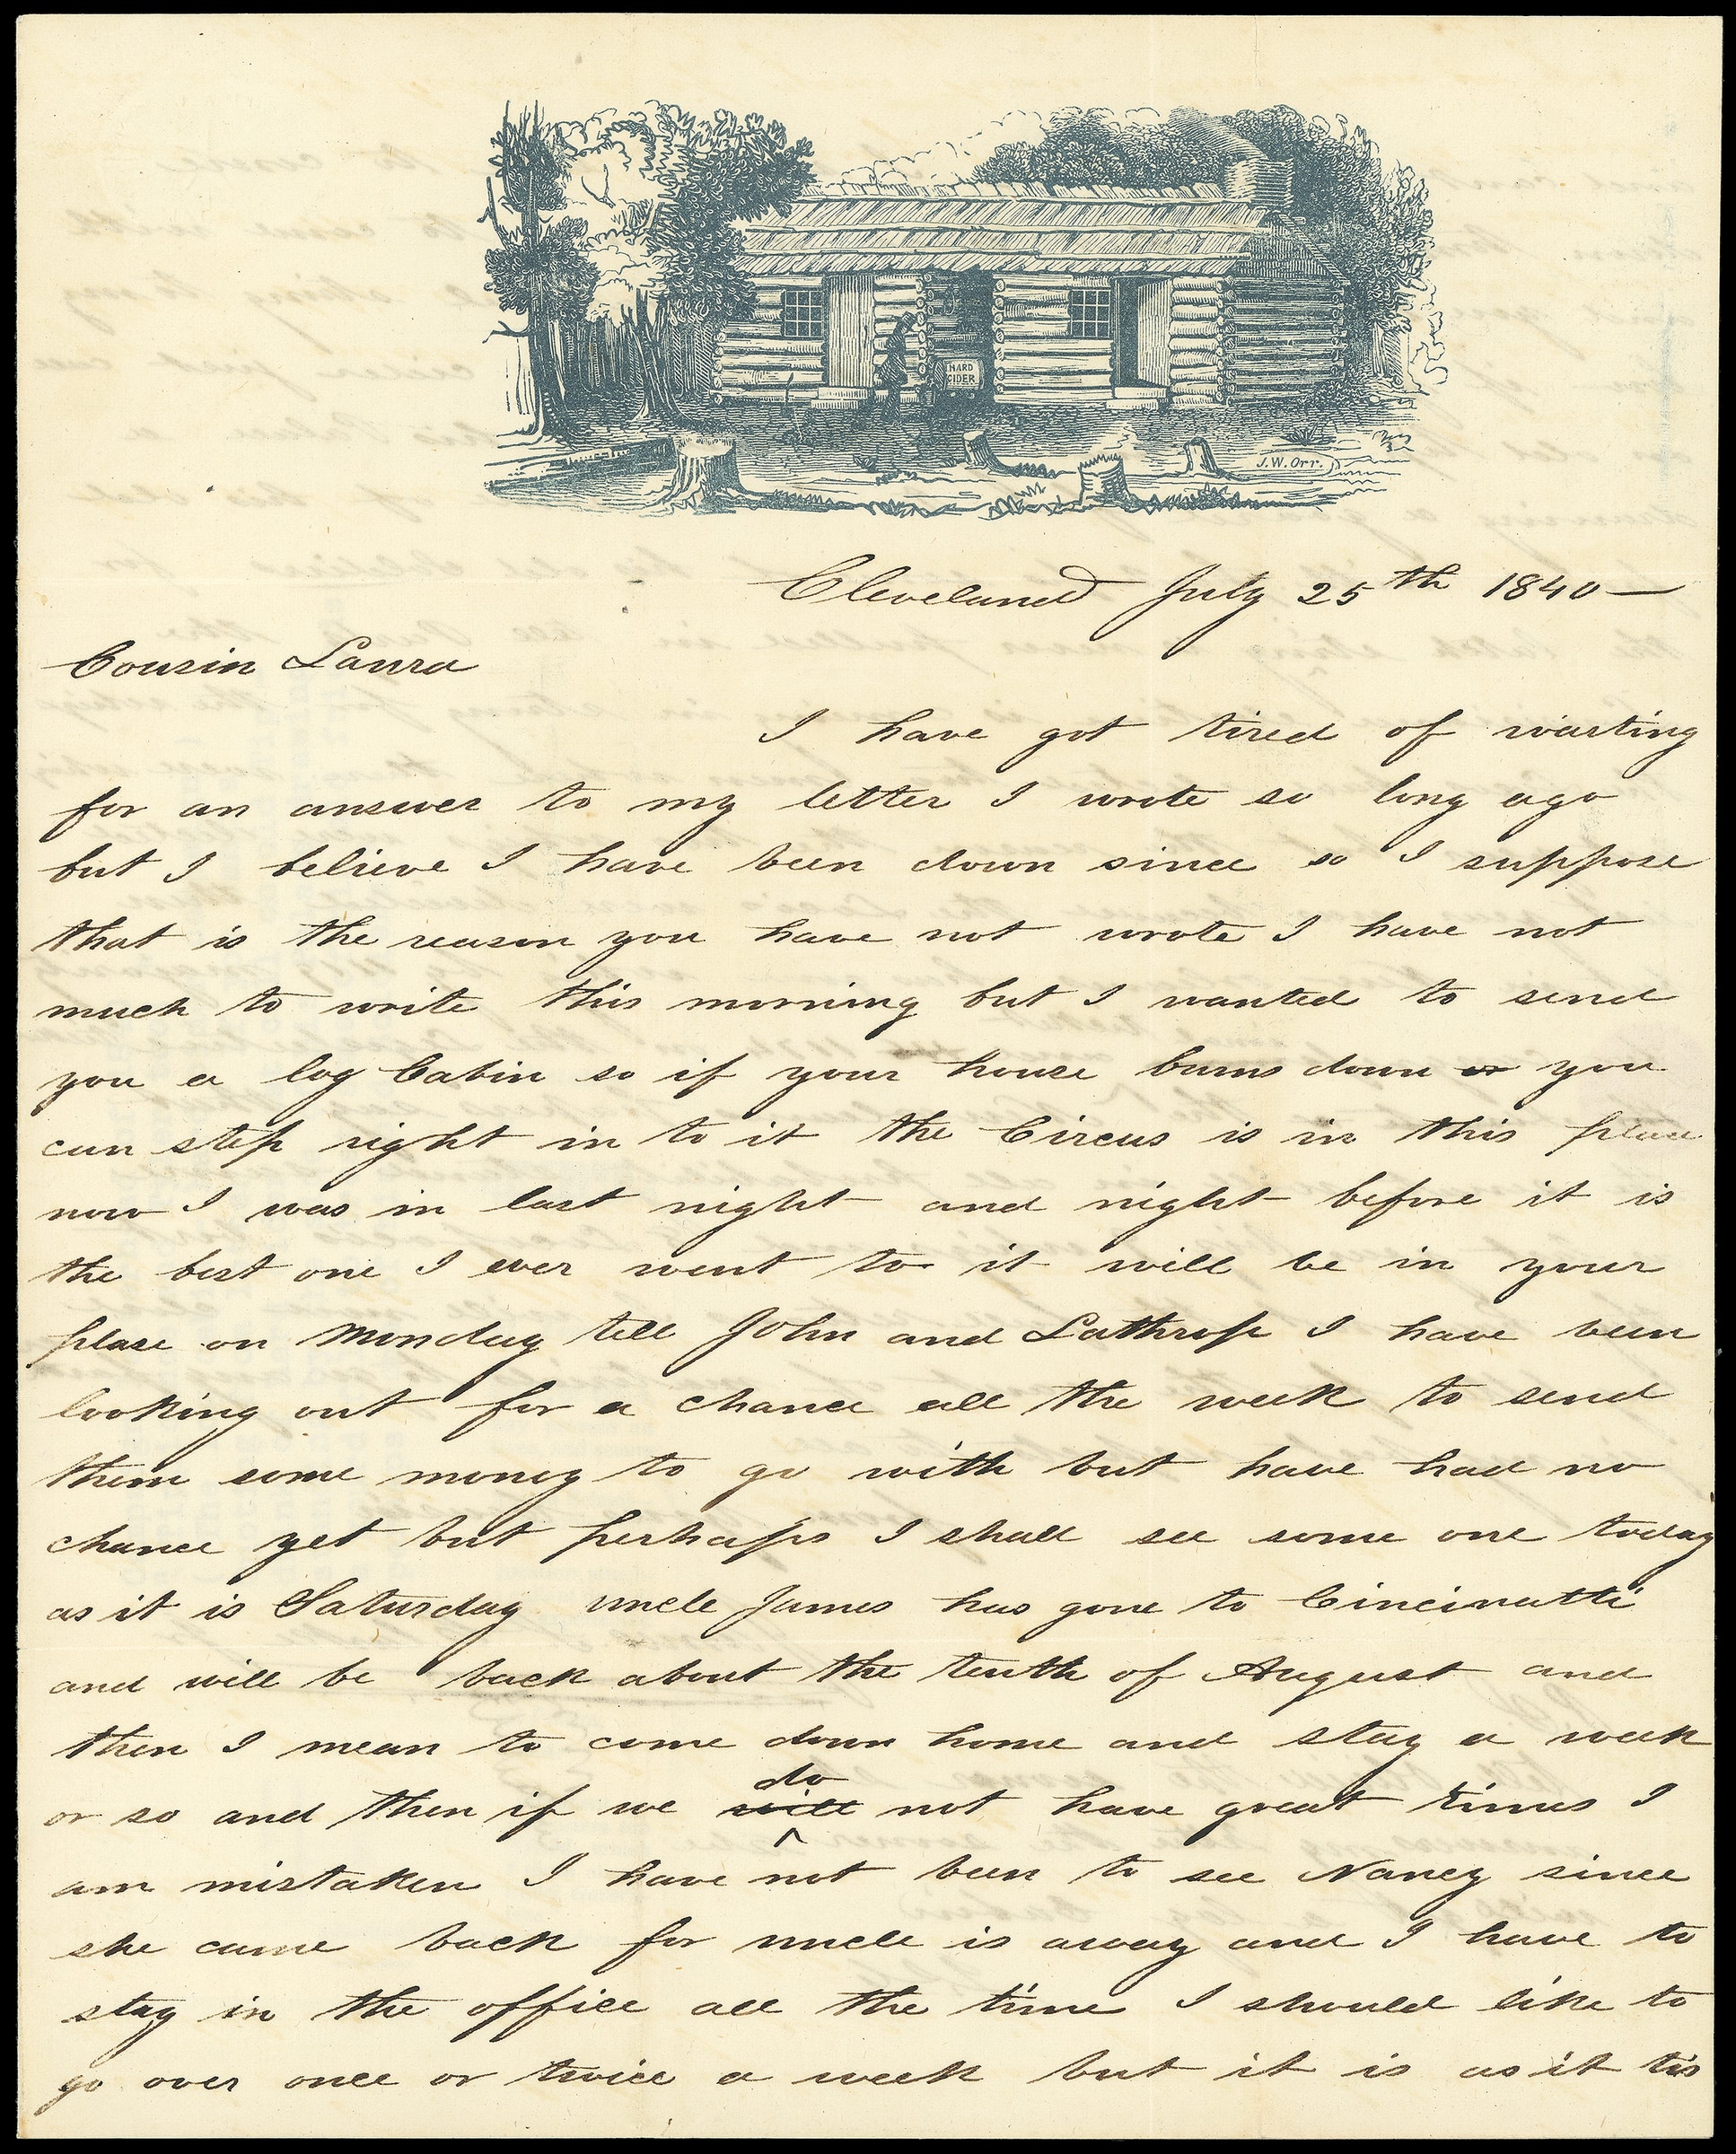 HARD
CIDER
J.W.Orr.
Cleveland July 25th 1840—
Cousin Laura
I have got tired of waiting
for an answer to my letter I wrote so long ago
but I believe I have been down since so I suppose
that is the reason you have not wrote I have not
much to write this morning but I wanted to send
you a log Cabin so if your house burns down or you
can step right in to it the Circus is in this place
now I was in last night and night before it is
the best one I ever went to it will be in your
plase on Monday tell John and Lathrop I have been
looking out for a chance all the week to send
them some money to go with but have had no
chance yet but perhaps I shall see some one today
as it is Saturday uncle James has gone to Cincinatti
and will be back about the tenth of August and
then I mean to come down home and stay a week
do
or so and then if we will not have great times I
am mistaken I have not been to see Nancy since
she came back for uncle is away and I have to
stay in the office all the time I should like to
go over once or twice a week but it is as it tis